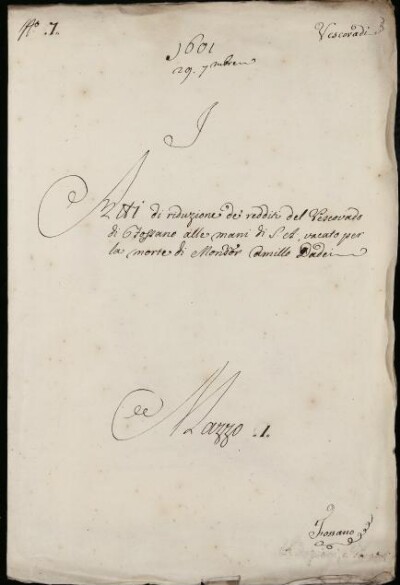 N.º 7.
Vescovadi
1601
29. 7mbre
I
Atti di riduzione de' redditi del Vescovado
di Fossano alle mani di S. A. vacato per
la morte di Mondor Camillo Dadei
Mazzo .1.
Fossano